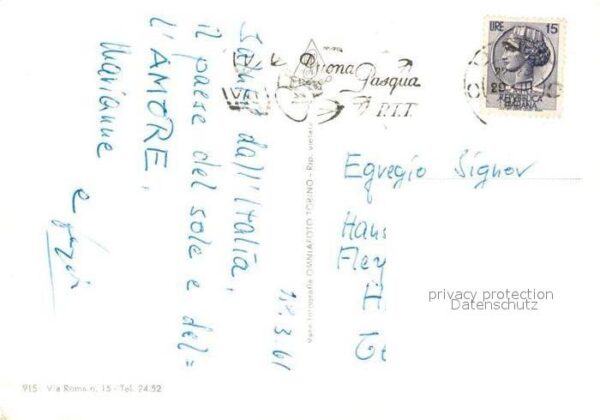 Saluti dall'Italia,
il paese del sole e del=
l'AMORE,
Marianne
e
14.3.61
Vera Fotografia OMNIAFOTO TORINO - Rip. vietata
915 Via Roma n. 15 - Tel. 24.52
Buona
Pasqua
P.T.T.
LIRE 15
REPVBBLICA
ITALIANA
Egregio Signor
Hans
Fley
H
Ge
privacy protection
Datenschutz